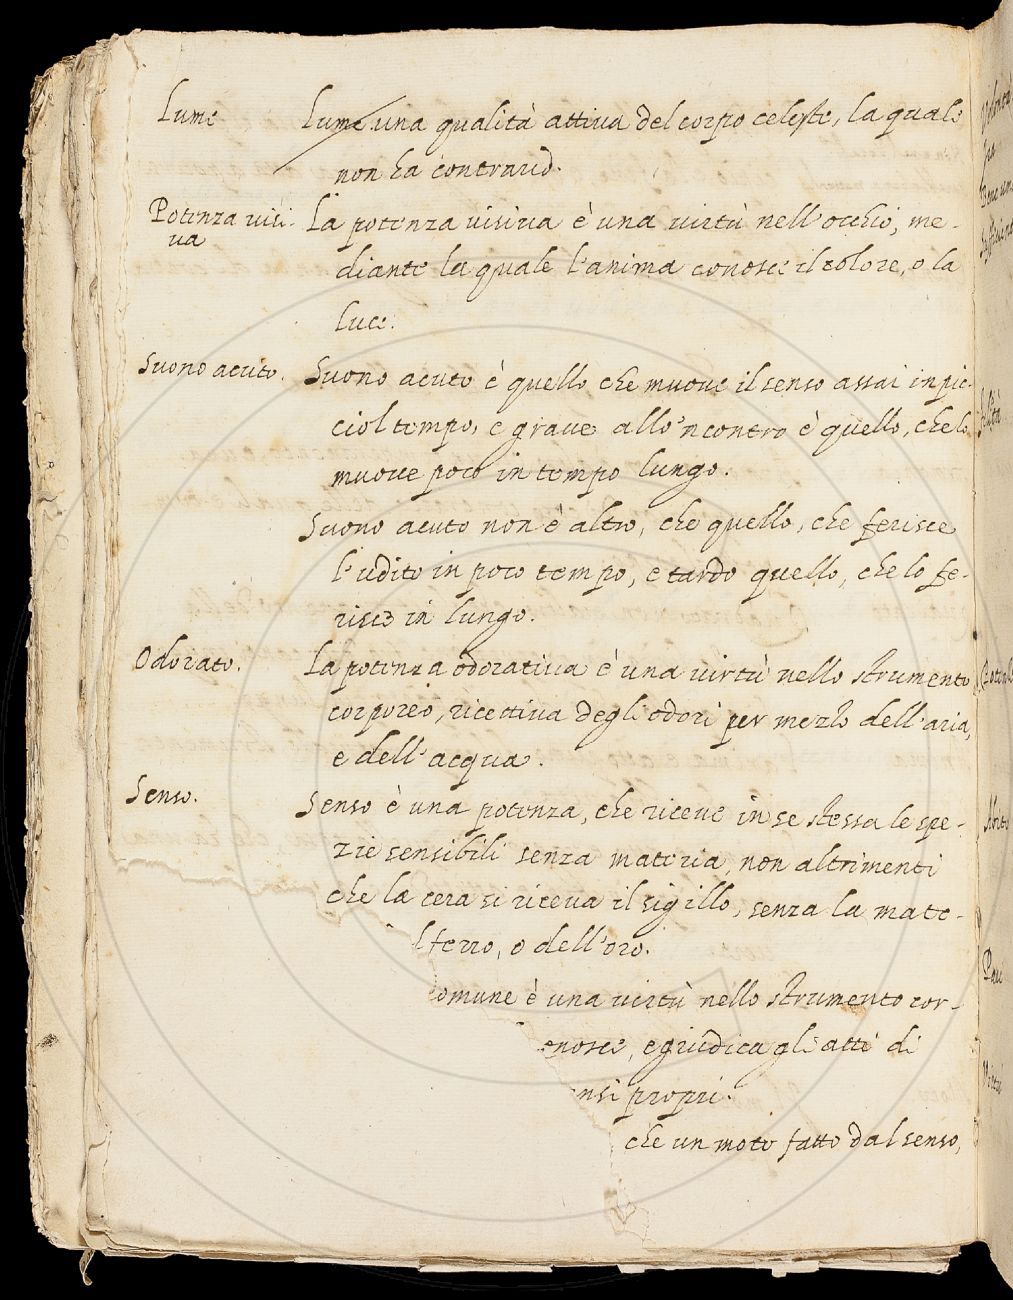 Lume Lume una qualità attiua del corpo celeste, la quale
non ha contrario.
Potenza visi- La potenza visiua è una uirtù nell'occhio, me-
ua
diante la quale l'anima conosce il colore, o la
luce.
Suono acuto. Suono acuto è quello, che muoue il senso assai in pic-
ciol tempo, e graue allo'ncontro è quello, che lo
muoue poco in tempo lungo.
Suono acuto non è altro, che quello, che ferisce
l'udito in poco tempo, e tardo quello, che lo fe-
risce in lungo.
Odorato. La potenza odoratiua è una uirtù nello strumento
corporeo, ricettiua degli odori per mezzo dell'aria,
e dell'acqua.
Senso. Senso è una potenza, che riceue in se stessa le spe-
zie sensibili senza materia, non altrimenti
che la cera si riceua il sigillo, senza la mate-
l ferro, o dell'oro.
omune è una uirtù nello strumento cor-
onosce, e giudica gli atti di
ensi propri.
che un moto fatto dal senso,